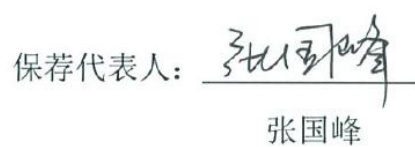 保荐代表人：张国峰
张国峰